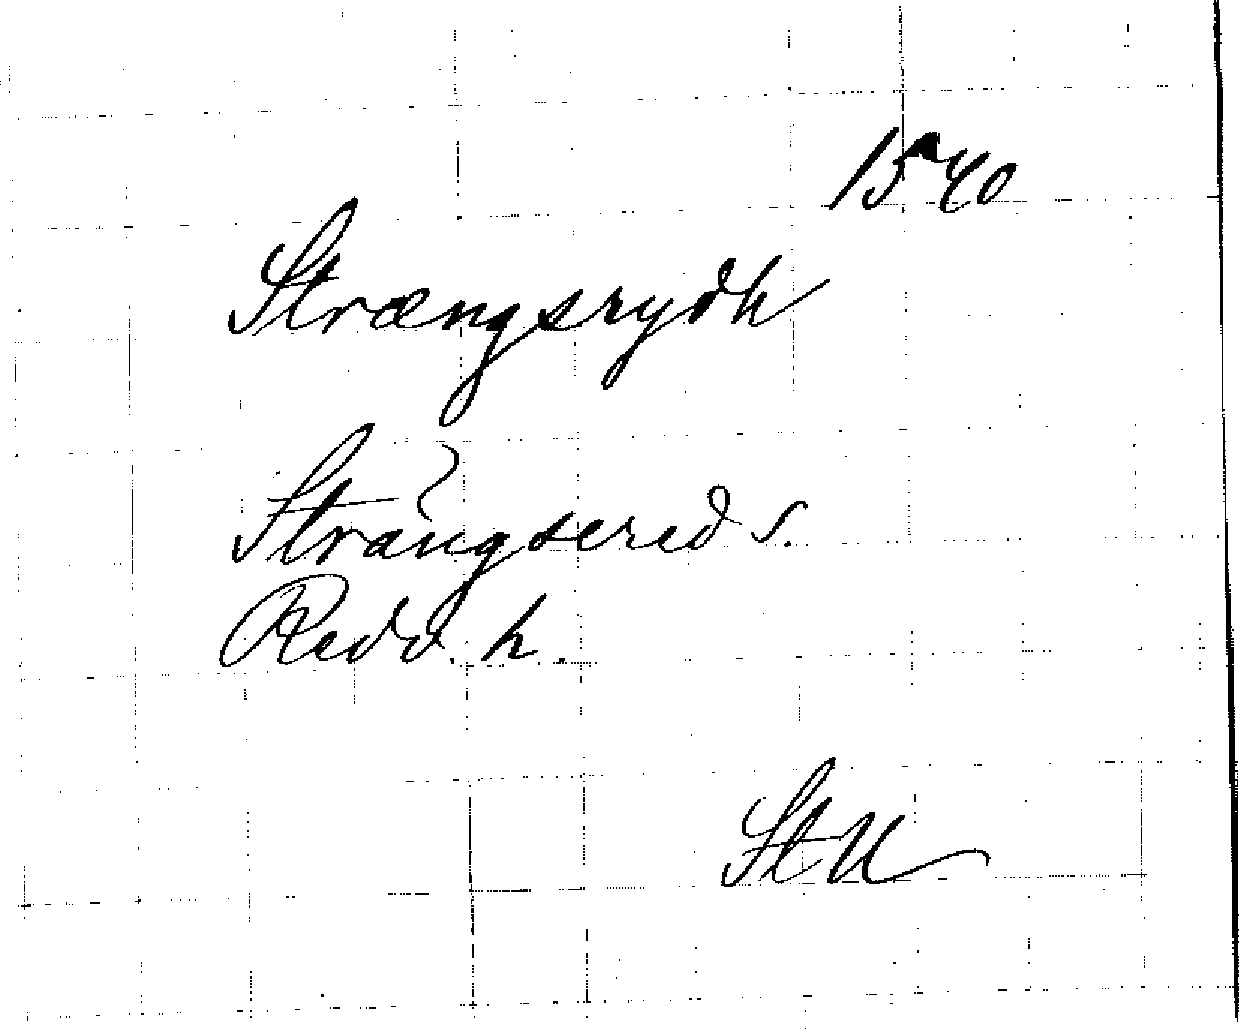 1540
Strængsrydh
Strängsered s.
Redv. h.
StU